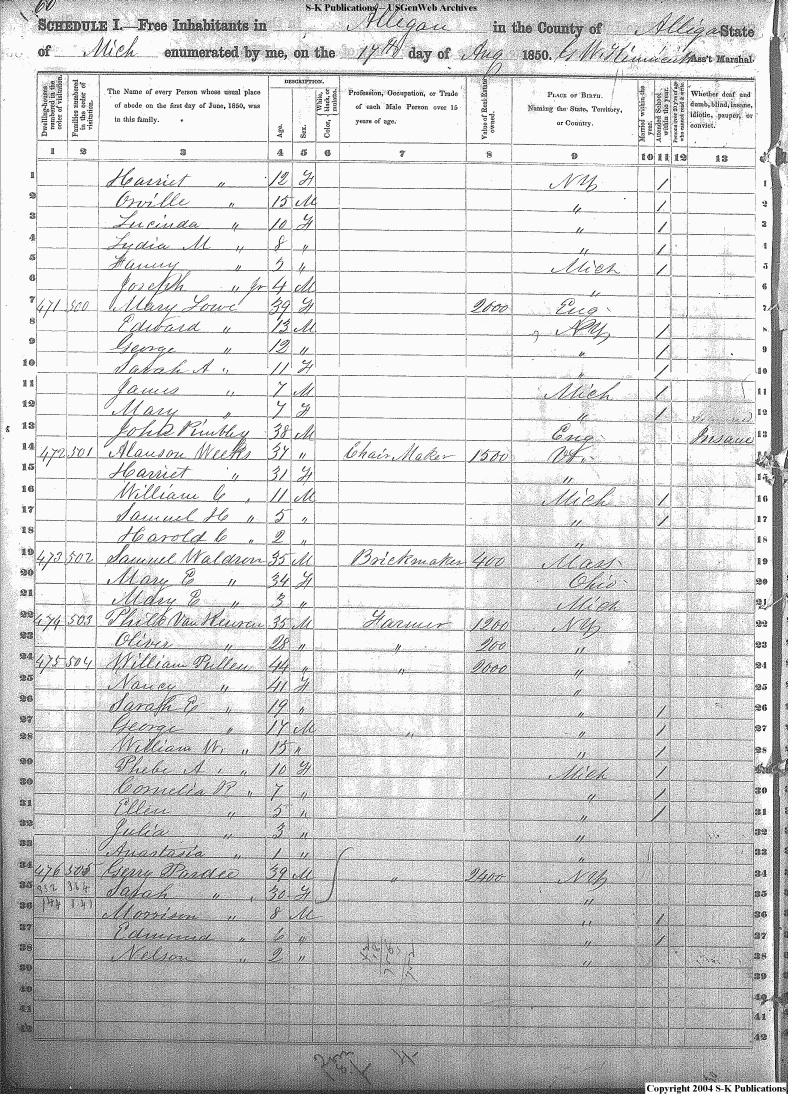 S-K Publications – USGenWeb Archives
60
SCHEDULE I.—Free Inhabitants in Allegan in the County of Allegan State
of Mich enumerated by me, on the 17th day of Aug 1850. Ass't Marshal.
Dwelling-houses numbered in the order of visitation.
Families numbered in the order of visitation.
The Name of every Person whose usual place of abode on the first day of June, 1850, was in this family.
DESCRIPTION.
Age.
Sex.
Color, White, black, or mulatto.
Profession, Occupation, or Trade of each Male Person over 15 years of age.
Value of Real Estate owned.
PLACE OF BIRTH. Naming the State, Territory, or Country.
Married within the year.
Attended School within the year.
Persons over 20 y'rs of age who cannot read & write.
Whether deaf and dumb, blind, insane, idiotic, pauper, or convict.
1 2 3 4 5 6 7 8 9 10 11 12 13
1 Harriet " 12 F NY / 1
2 Orville " 15 M " / 2
3 Lucinda " 10 F " / 3
4 Lydia M " 8 " " / 4
5 Fanny " 5 " Mich / 5
6 Joseph " Jr 4 M " 6
7 471 500 Mary Lowe 39 F 2000 Eng. 7
8 Edward " 13 M NY / 8
9 George " 12 " " / 9
10 Sarah A " 11 F " / 10
11 James " 7 M Mich / 11
12 Mary " 7 F " / 12
13 John Rimbley 38 M Eng. Insane 13
14 472 501 Alanson Weeks 37 " Chair Maker 1500 Vt. 14
15 Harriet " 31 F " 15
16 William C " 11 M Mich / 16
17 Samuel H " 5 " " / 17
18 Harold C " 2 " " 18
19 473 502 Samuel Waldron 35 M Brickmaker 400 Mass 19
20 Mary E " 34 F Ohio 20
21 Mary E " 3 " Mich 21
22 474 503 Philo Van Keuren 35 M Farmer 1200 NY 22
23 Oliver " 28 " " 200 " 23
24 475 504 William Pullen 44 " " 2000 " 24
25 Nancy " 41 F " 25
26 Sarah E " 19 " " / 26
27 George " 17 M " " / 27
28 William W. " 15 " " / 28
29 Phebe A " 10 F Mich / 29
30 Cornelia R " 7 " " / 30
31 Ellen " 5 " " / 31
32 Julia " 3 " " 32
33 Anastasia " 1 " " 33
34 476 505 Gerry Pardee 39 M " 2400 NY 34
35 Sarah " 30 F " 35
36 Morrison " 8 M " / 36
37 Edmund " 6 " " / 37
38 Nelson " 2 " " 38
39 39
40 40
41 41
42 42
Copyright 2004 S-K Publications